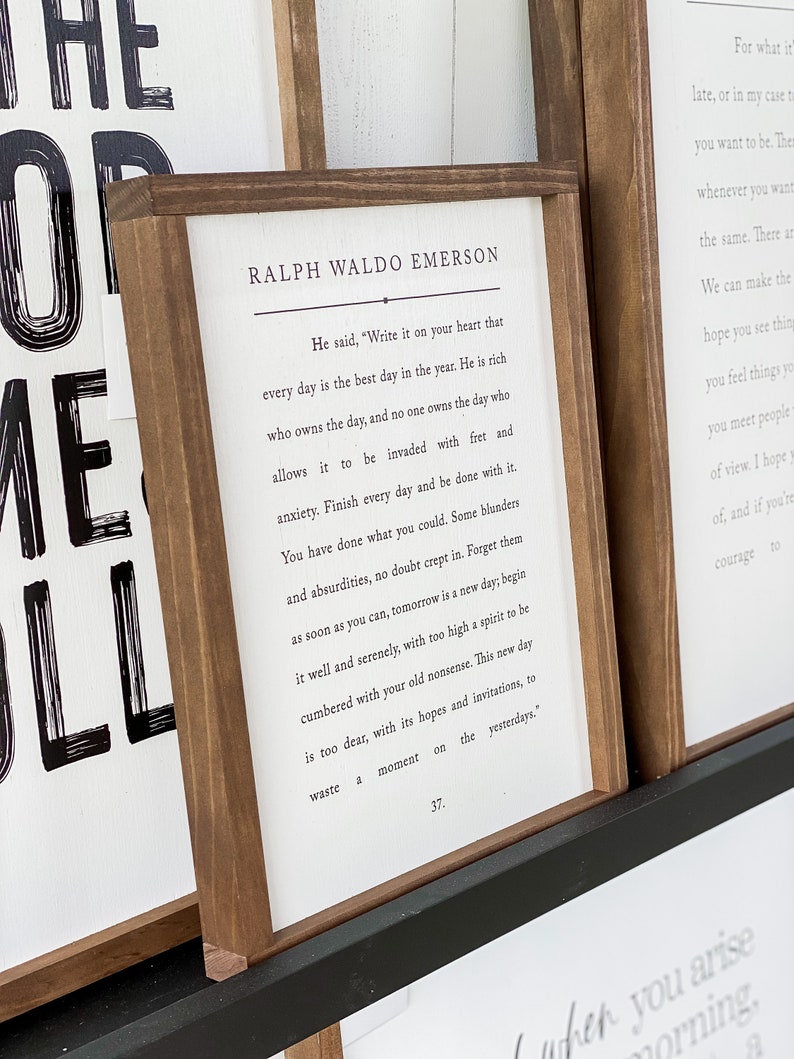 THE
ME
RALPH WALDO EMERSON
He said, “Write it on your heart that
every day is the best day in the year. He is rich
who owns the day, and no one owns the day who
allows it to be invaded with fret and
anxiety. Finish every day and be done with it.
You have done what you could. Some blunders
and absurdities, no doubt crept in. Forget them
as soon as you can, tomorrow is a new day; begin
it well and serenely, with too high a spirit to be
cumbered with your old nonsense. This new day
is too dear, with its hopes and invitations, to
waste a moment on the yesterdays.”
37.
For what it's
late, or in my case to
you want to be. There
whenever you want
the same. There are
We can make the
hope you see things
you feel things yo
you meet people
of view. I hope y
of, and if you're
courage to
when you arise
morning,
a